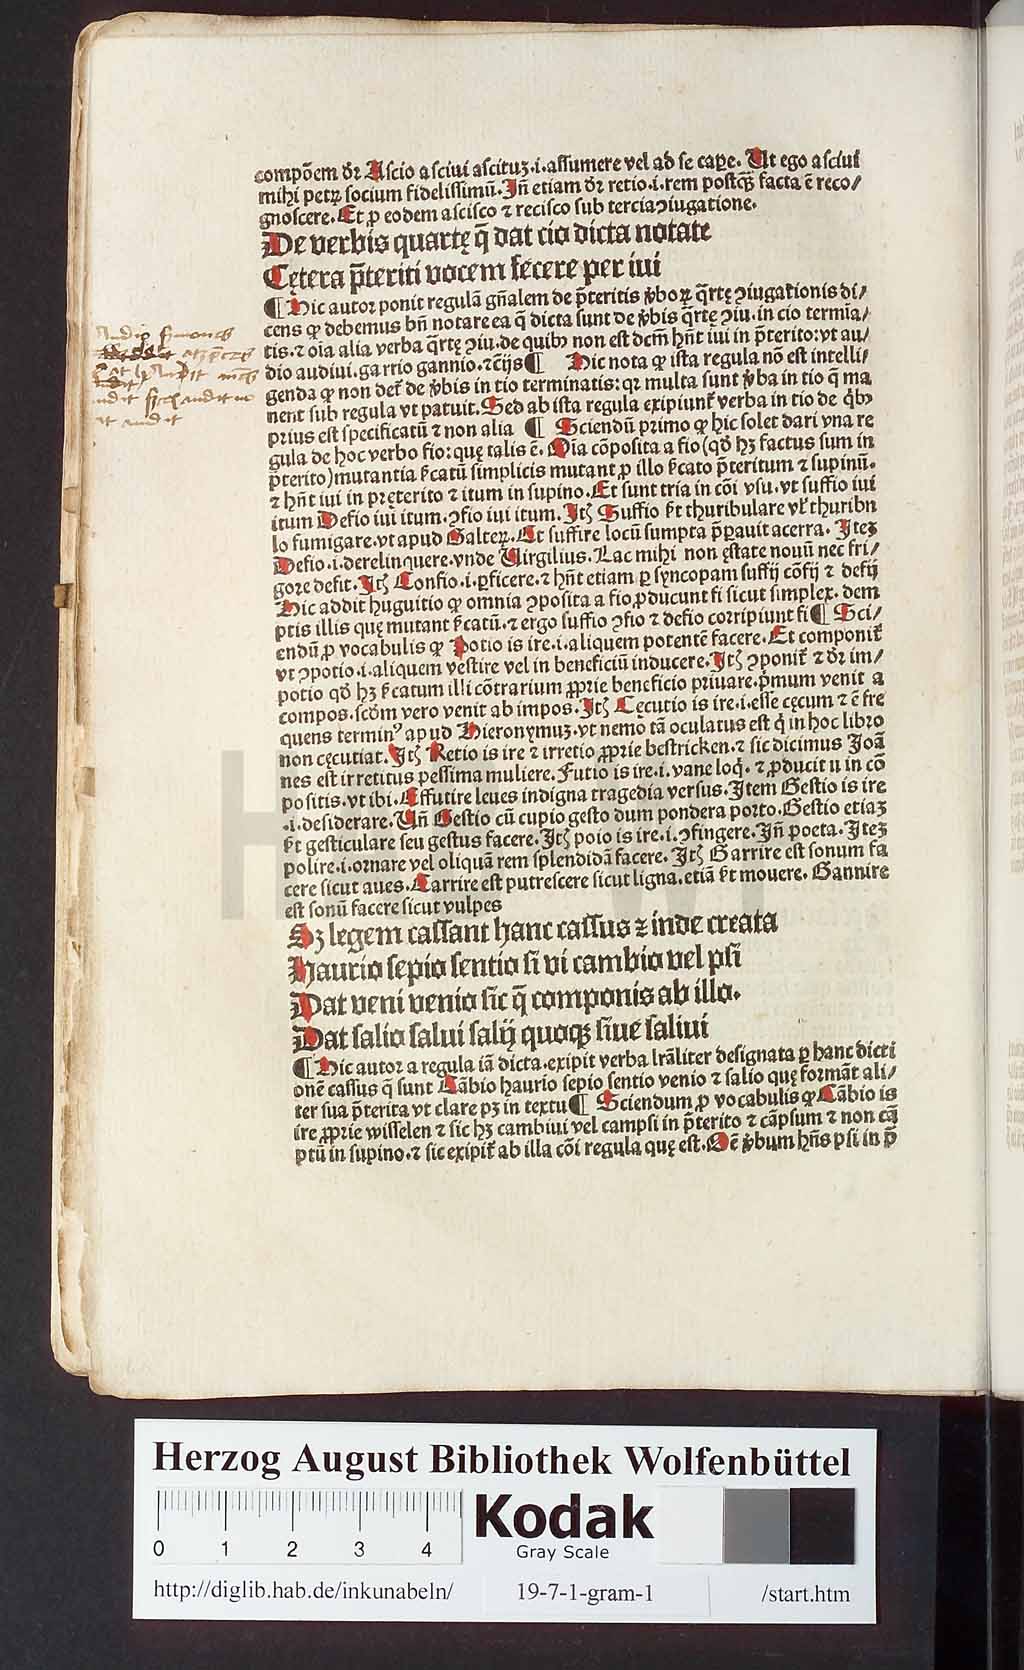 compõem dr̃ Ascio asciui ascituz.i.assumere vel ad se cape. Ut ego asciui
mihi petrꝝ socium fidelissimũ. Jñ etiam dr̃ retio.i.rem postqȝ facta ẽ reco/
gnoscere. Et ꝓ eodem ascisco ⁊ recisco sub tercia ꝯiugatione.
De verbis quartę q̃ dat cio dicta notate
Cętera p̃teriti vocem fecere per iui
¶ Hic autor ponit regulã gñalem de p̃teritis v̓boꝝ q̃rtę ꝯiugationis di/
cens ꝙ debemus bñ notare ea q̃ dicta sunt de v̓bis q̃rtę ꝯiu. in cio termĩa/
tis.⁊ oĩa alia verba q̃rtę ꝯiu. de quibꝰ non est dcm̃ hñt iui in p̃terito: vt au/
dio audiui. garrio gannio.⁊c̃ijs ¶ Hic nota ꝙ ista regula nõ est intelli/
genda ꝙ non det̃ de v̓bis in tio terminatis: qꝛ multa sunt v̓ba in tio q̃ ma
nent sub regula vt patuit. Sed ab ista regula exipiunt̃ verba in tio de q̃bꝰ
prius est specificatũ ⁊ non alia ¶ Sciendũ primo ꝙ hic solet dari vna re
gula de hoc verbo fio: quę talis ẽ. Oĩa cõposita a fio (qđ hȝ factus sum in
p̃terito) mutantia s̃catũ simplicis mutant ꝓ illo s̃cato p̃teritum ⁊ supinũ.
⁊ hñt iui in pręterito ⁊ itum in supino. Et sunt tria in cõi vsu. vt suffio iui
itum Defio iui itum. ꝯfio iui itum. Jtȝ Suffio s̃t thuribulare vl̃ thuribu
lo fumigare. vt apud Galterꝝ. Et suffire locũ sumpta p̃pauit acerra. Jteȝ
Defio.i.derelinquere. vnde Virgilius. Lac mihi non ęstate nouũ nec fri/
gore defit. Jtȝ Confio.i.ꝑficere.⁊ hñt etiam ꝑ syncopam suffij cõfij ⁊ defij
Hic addit huguitio ꝙ omnia ꝯposita a fio, ꝓducunt fi sicut simplex. dem
ptis illis quę mutant s̃catũ.⁊ ergo suffio ꝯfio ⁊ defio corripiunt fi ¶ Sci/
endũ ꝓ vocabulis ꝙ Potio is ire.i.aliquem potentẽ facere. Et componit̃
vt ꝯpotio.i.aliquem vestire vel in beneficiũ inducere. Jtȝ ꝯponit̃ ⁊ dr̃ im/
potio qđ hȝ s̃catum illi cõtrarium ꝓprie beneficio priuare. p̃mum venit a
compos. scđm vero venit ab impos. Jtȝ Cęcutio is ire.i.esse cęcum ⁊ ẽ fre
quens terminꝰ apud Hieronymuȝ. vt nemo tã oculatus est q̃ in hoc libro
non cęcutiat. Jtȝ Retio is ire ⁊ irretio ꝓprie bestricken.⁊ sic dicimus Joã
nes est irretitus pessima muliere. Futio is ire.i.vane loq̃.⁊ ꝓducit u in cõ
positis. vt ibi. Effutire leues indigna tragedia versus. Jtem Gestio is ire
.i.desiderare. Vñ Gestio cũ cupio gesto dum pondera porto. Gestio etiaȝ
s̃t gesticulare seu gestus facere. Jtȝ poio is ire.i.ꝯfingere. Jñ poeta. Jteȝ
polire.i.ornare vel oliquã rem splendidã facere. Jtȝ Garrire est sonum fa
cere sicut aues. Carrire est putrescere sicut ligna. etiã s̃t mouere. Gannire
est sonũ facere sicut vulpes
Sȝ legem cassant hanc cassus ⁊ inde creata
Haurio sepio sentio si vi cambio vel psi
Dat veni venio sic q̃ componis ab illo.
Dat salio salui salij quoqȝ siue saliui
¶ Hic autor a regula iã dicta. exipit verba lr̃aliter designata ꝑ hanc dicti
onẽ cassus q̃ sunt Cãbio haurio sepio sentio venio ⁊ salio quę formãt ali/
ter sua p̃terita vt clare pȝ in textu ¶ Sciendum ꝓ vocabulis ꝙ Cãbio is
ire ꝓprie wisselen ⁊ sic hȝ cambiui vel campsi in p̃terito ⁊ cãpsum ⁊ non cã
ptũ in supino.⁊ sic exipit̃ ab illa cõi regula quę est. Oẽ v̓bum hñs psi in p̃
HAB WF
Herzog August Bibliothek Wolfenbüttel
0 1 2 3 4
Kodak
Gray Scale
http://diglib.hab.de/inkunabeln/ 19-7-1-gram-1 /start.htm